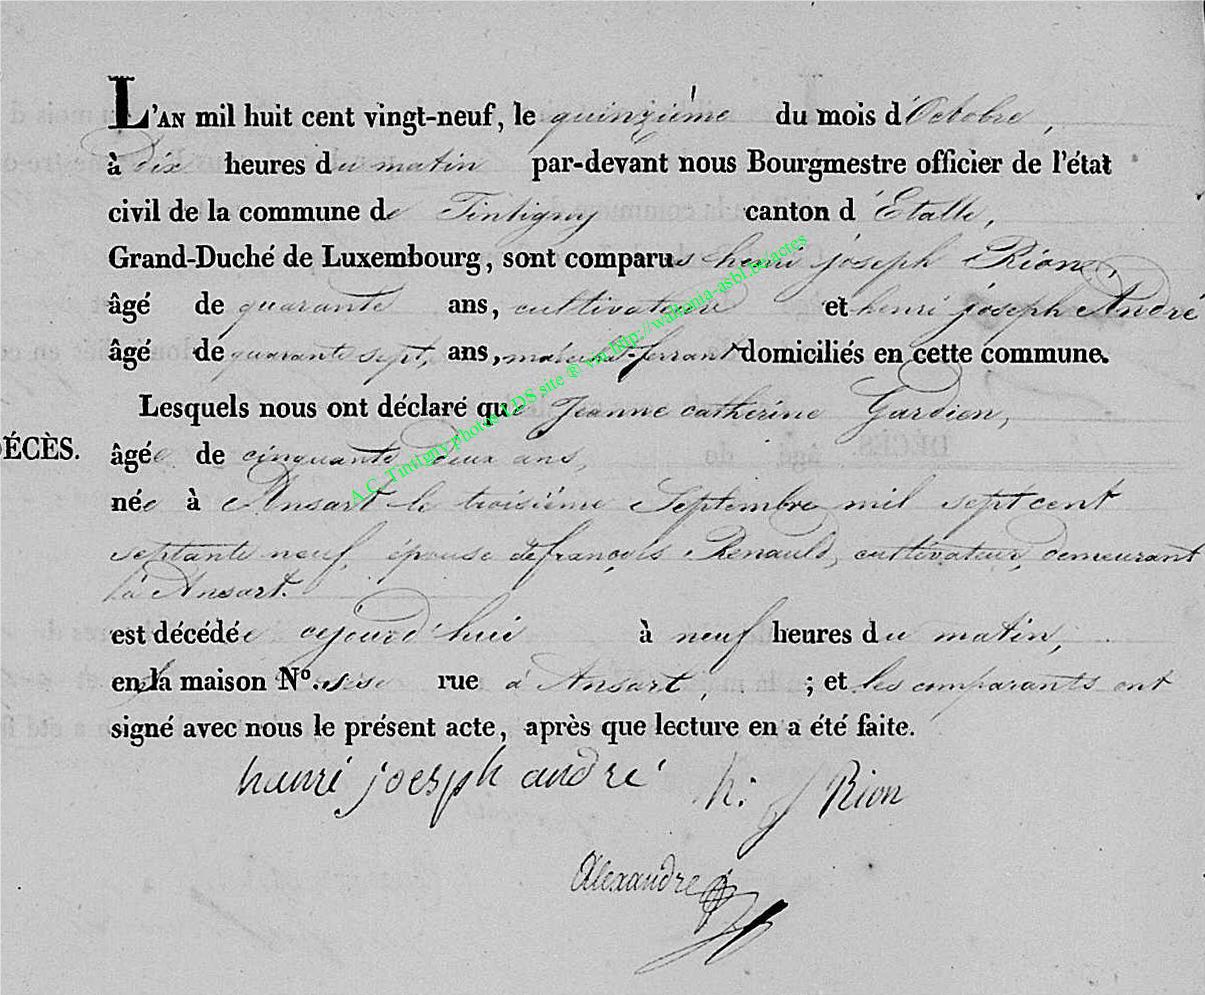 L'AN mil huit cent vingt-neuf, le quinzième du mois d'Octobre,
à dix heures du matin par-devant nous Bourgmestre officier de l'état
civil de la commune de Tintigny canton d'Etalle,
Grand-Duché de Luxembourg, sont comparus henri joseph Rion,
âgé de quarante ans, cultivateur et henri joseph André
âgé de quarante sept, ans, maréchal-ferrant domiciliés en cette commune.
Lesquels nous ont déclaré que Jeanne catherine Gardien,
DÉCÈS. âgée de cinquante deux ans,
née à Ansart le troisième Septembre mil sept cent
septante neuf, épouse de françois Renauld, cultivateur, demeurant
à Ansart.
est décédée aujourd'hui à neuf heures du matin,
en la maison Nº. sise rue à Ansart, ; et les comparants ont
signé avec nous le présent acte, après que lecture en a été faite.
henri joesph andré h. j Rion
Alexandre
A.C. Tintigny photos LDS site ® via http://wallonia-asbl.be/actes